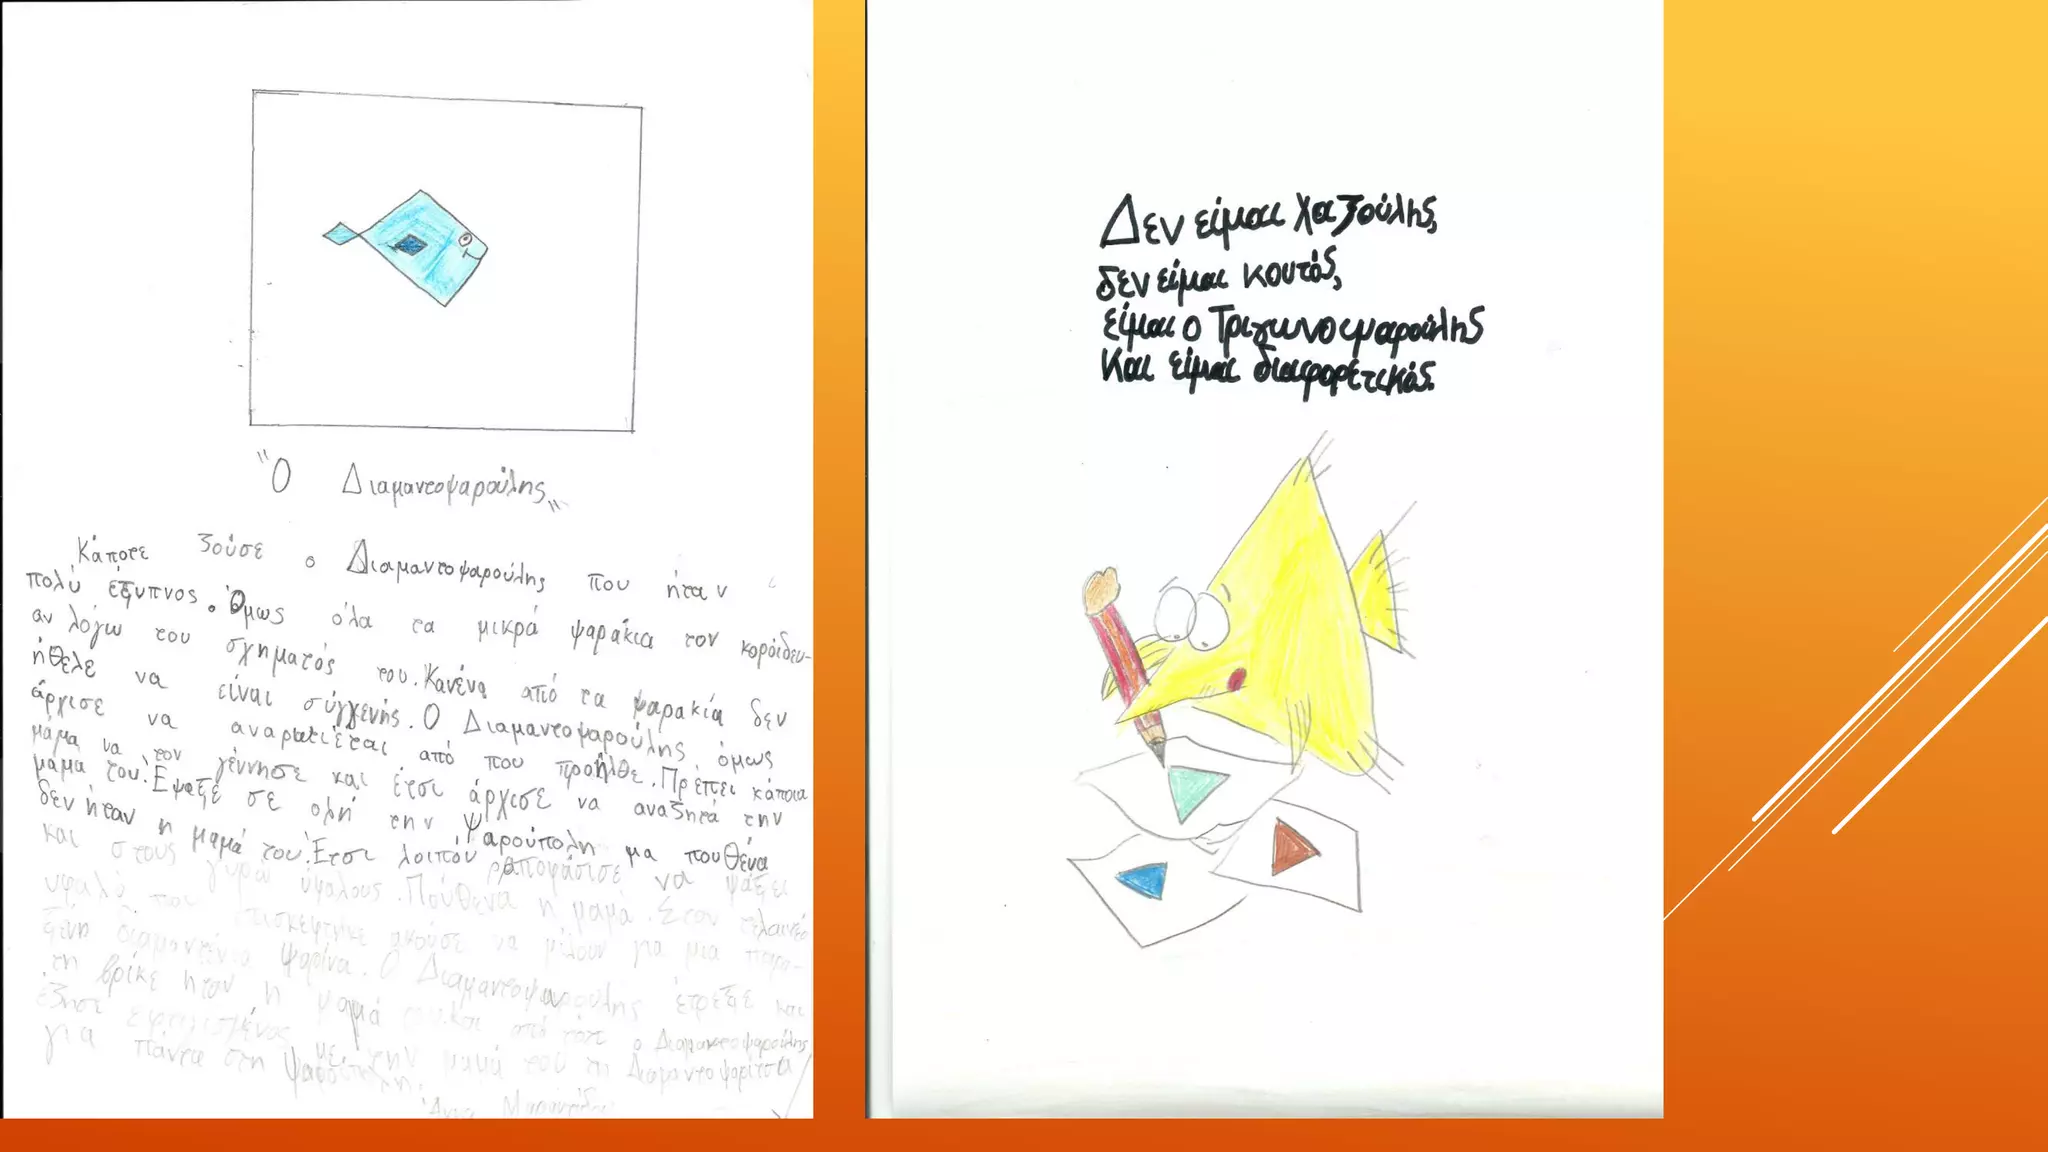 "Ο Διαμαντοψαρούλης"
Κάποτε ζούσε ο Διαμαντοψαρούλης που ήταν
πολύ έξυπνος. Όμως όλα τα μικρά ψαράκια τον κορόιδευ-
αν λόγω του σχηματός του. Κανένα από τα ψαρακία δεν
ήθελε να είναι σύγγενής. Ο Διαμαντοψαρούλης όμως
άρχισε να αναρωτιέται από που προήλθε. Πρέπει κάποια
μάμα να τον γέννησε και έτσι άρχισε να αναζητά την
μαμα του. Έψαξε σε ολή την Ψαρούπολη μα πουθένα
δεν ήταν η μαμά του. Έτσι λοιπόν αποφάσισε να ψάξει
και στους γύρω ύφαλους. Πούθενα η μαμά. Στον τελαιυέο
υφαλό που επισκεφτηκε ακούσε να μίλουν για μια παρα-
ξενη διαμαντένια ψαρίνα. Ο Διαμαντοψαρούλης έτρεξε και
τη βρίκε ήταν η μαμά του και από τότε ο Διαμαντοψαρούλης
έζησε ευτυλισμένος με την μαμά του τη Διαμαντοψαρίτσα
για πάντα στη Ψαρούπολη.
Δεν είμαι χαζούλης,
δεν είμαι κουτός,
είμαι ο Τριγωνοψαρούλης
Και είμαι διαφορετικός.